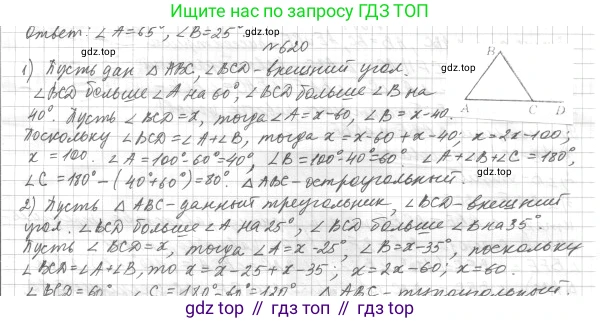 Ищите нас по запросу ГДЗ ТОП
Ответ: ∠A=65°, ∠B=25°
№620
1) Пусть дан △ABC, ∠BCD-внешний угол.
∠BCD больше ∠A на 60°, ∠BCD больше ∠B на
40°. Пусть ∠BCD=x, тогда ∠A=x-60, ∠B=x-40.
Поскольку ∠BCD=∠A+∠B, тогда x=x-60+x-40; x=2x-100;
x=100. ∠A=100°-60°=40°, ∠B=100°-40°=60° ∠A+∠B+∠C=180°,
∠C=180°-(40°+60°)=80°. △ABC-остроугольный.
B
A
C
D
2) Пусть △ABC-данный треугольник, ∠BCD-внешний
угол. ∠BCD больше ∠A на 25°, ∠BCD больше ∠B на 35°.
Пусть ∠BCD=x, тогда ∠A=x-25°, ∠B=x-35°, поскольку
∠BCD=∠A+∠B, то x=x-25+x-35; x=2x-60; x=60.
∠BCD=60° ∠C=180°-60°=120° △ABC-тупоугольный.
gdz.top // gdz.top // gdz.top